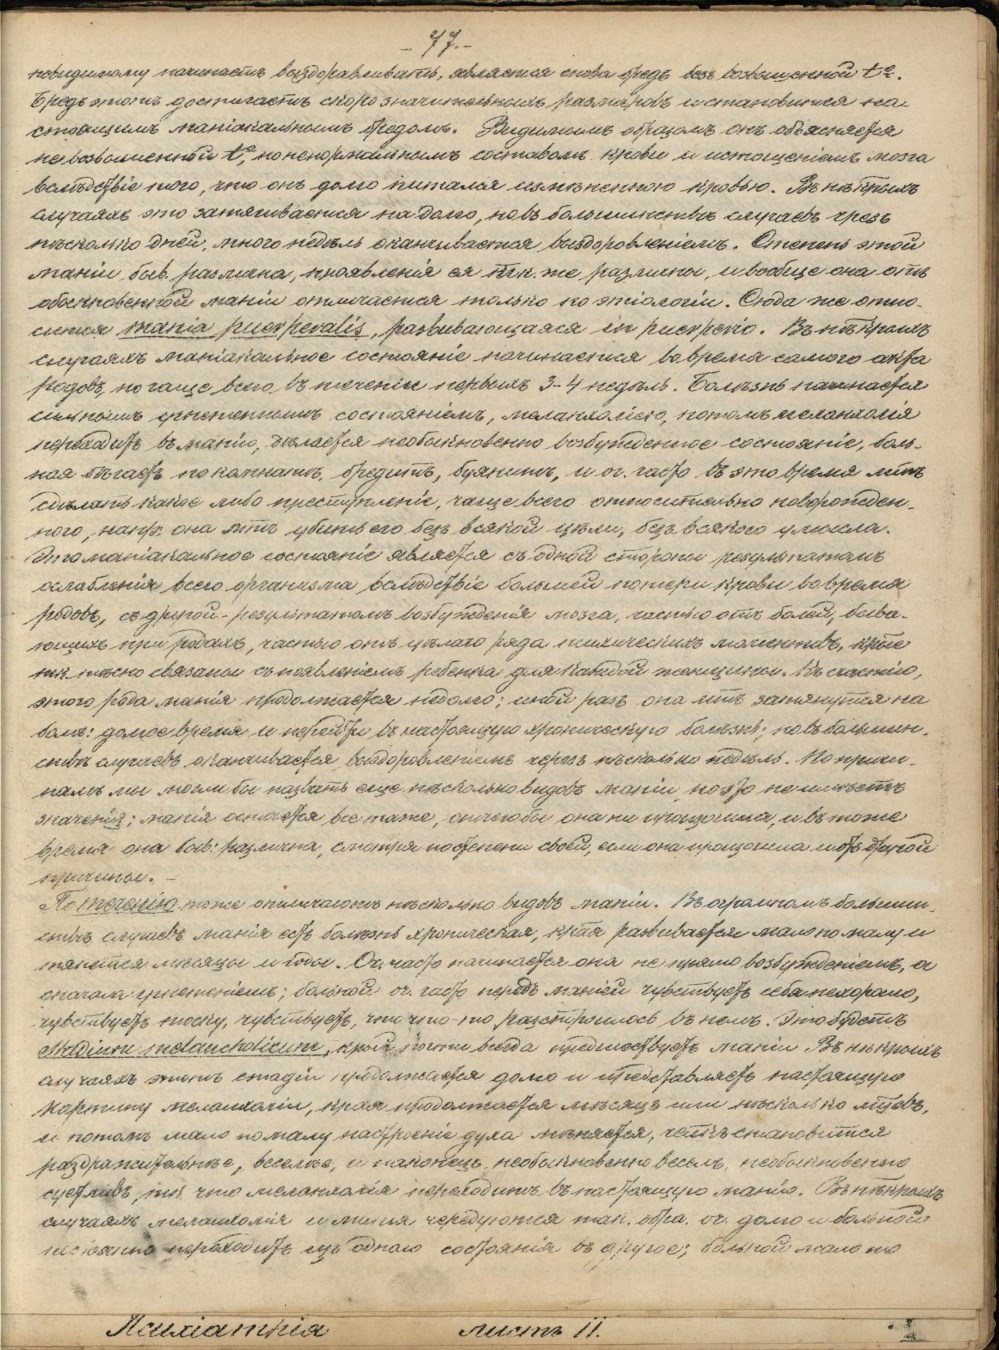 - 77. -
повидимому начинаетъ выздоравливать, является снова бредъ безъ возвышенной tº.
Бредъ этотъ достигаетъ скоро значительныхъ размѣровъ и становится на-
стоящимъ маніакальнымъ бредомъ. Видимымъ образомъ онъ объясняется
не возвышенной tº, но ненормальнымъ составомъ крови и истощеніемъ мозга
вслѣдствіе того, что онъ долго питался измѣненною кровью. Въ нѣкрыхъ
случаяхъ это затягивается на долго, но въ большинствѣ случаевъ чрезъ
нѣсколько дней, много недѣль оканчивается выздоровленіемъ. Степень этой
маніи быв. различна, проявленія ея так. же различны, и вообще она отъ
обыкновенной маніи отличается только по этіологіи. Сюда же отно-
сится mania puerperalis, развивающаяся in puerperio. Въ нѣкрыхъ
случаяхъ маніакальное состояніе начинается во время самого акта
родовъ, но чаще всего въ теченіи первыхъ 3-4 недѣль. Болѣзнь начинается
сильнымъ угнетеннымъ состояніемъ, меланхоліею, потомъ меланхолія
переходитъ въ манію, дѣлается необыкновенно возбужденное состояніе, боль-
ная бѣгаетъ по комнатѣ, бредитъ, буянитъ, и оч. часто въ это время мтъ
сдѣлать какое либо преступленіе, чаще всего относительно новорожден-
ного, напр. она мтъ убить его безъ всякой цѣли, безъ всякаго умысла.
Это маніакальное состояніе является съ одной стороны результатомъ
ослабленія всего организма вслѣдствіе большей потери крови во время
родовъ, съ другой - результатомъ возбужденія мозга, частью отъ болей, быва-
ющихъ при родахъ, частью отъ цѣлаго ряда психическихъ моментовъ, крые
так. тѣсно связаны съ появленіемъ ребенка для каждой женщины. Къ счастію,
этого рода манія продолжается недолго; иной разъ она мтъ затянутся на
болѣ: долгое время и перейти въ настоящую хроническую болѣзнь; но въ большин-
ствѣ случаевъ оканчивается выздоровленіемъ черезъ нѣсколько недѣль. По причи-
намъ мы могли бы назвать еще нѣсколько видовъ маніи, но это не имѣетъ
значенія; манія остается все таже, отчего бы она ни произошла, и въ тоже
время она быв: различна, смотря по степени своей, если она произошла и отъ другой
причины. -
По теченію тоже отличаютъ нѣсколько видовъ маніи. Въ огромномъ большин-
ствѣ случаевъ манія есть болѣзнь хроническая, края развивается мало по малу и
тянется мѣсяцы и годы. Оч. часто начинается она не прямо возбужденіемъ, а
сначала угнетеніемъ; больной оч. часто передъ маніей чувствуетъ себя нехорошо,
чувствуетъ тоску, чувствуетъ, что что-то разстроилось въ немъ. Это будетъ
Stadium melancholicum, крый почти всегда предшествуетъ маніи. Въ нѣкрыхъ
случаяхъ этотъ стадій продолжается долго и представляетъ настоящую
картину меланхоліи, края продолжается мѣсяцъ или нѣсколько мцевъ,
и потомъ мало по малу настроеніе духа мѣняется, челкъ становится
раздражительнѣе, веселѣе, и наконецъ необыкновенно веселъ, необыкновенно
суетливъ, так. что меланхолія переходитъ въ настоящую манію. Въ нѣкрыхъ
случаяхъ меланхолія и манія чередуются так. обра. оч. долго и больной
постоянно переходитъ изъ одного состоянія въ другое; больной мало по
Психіатрія листъ 11.